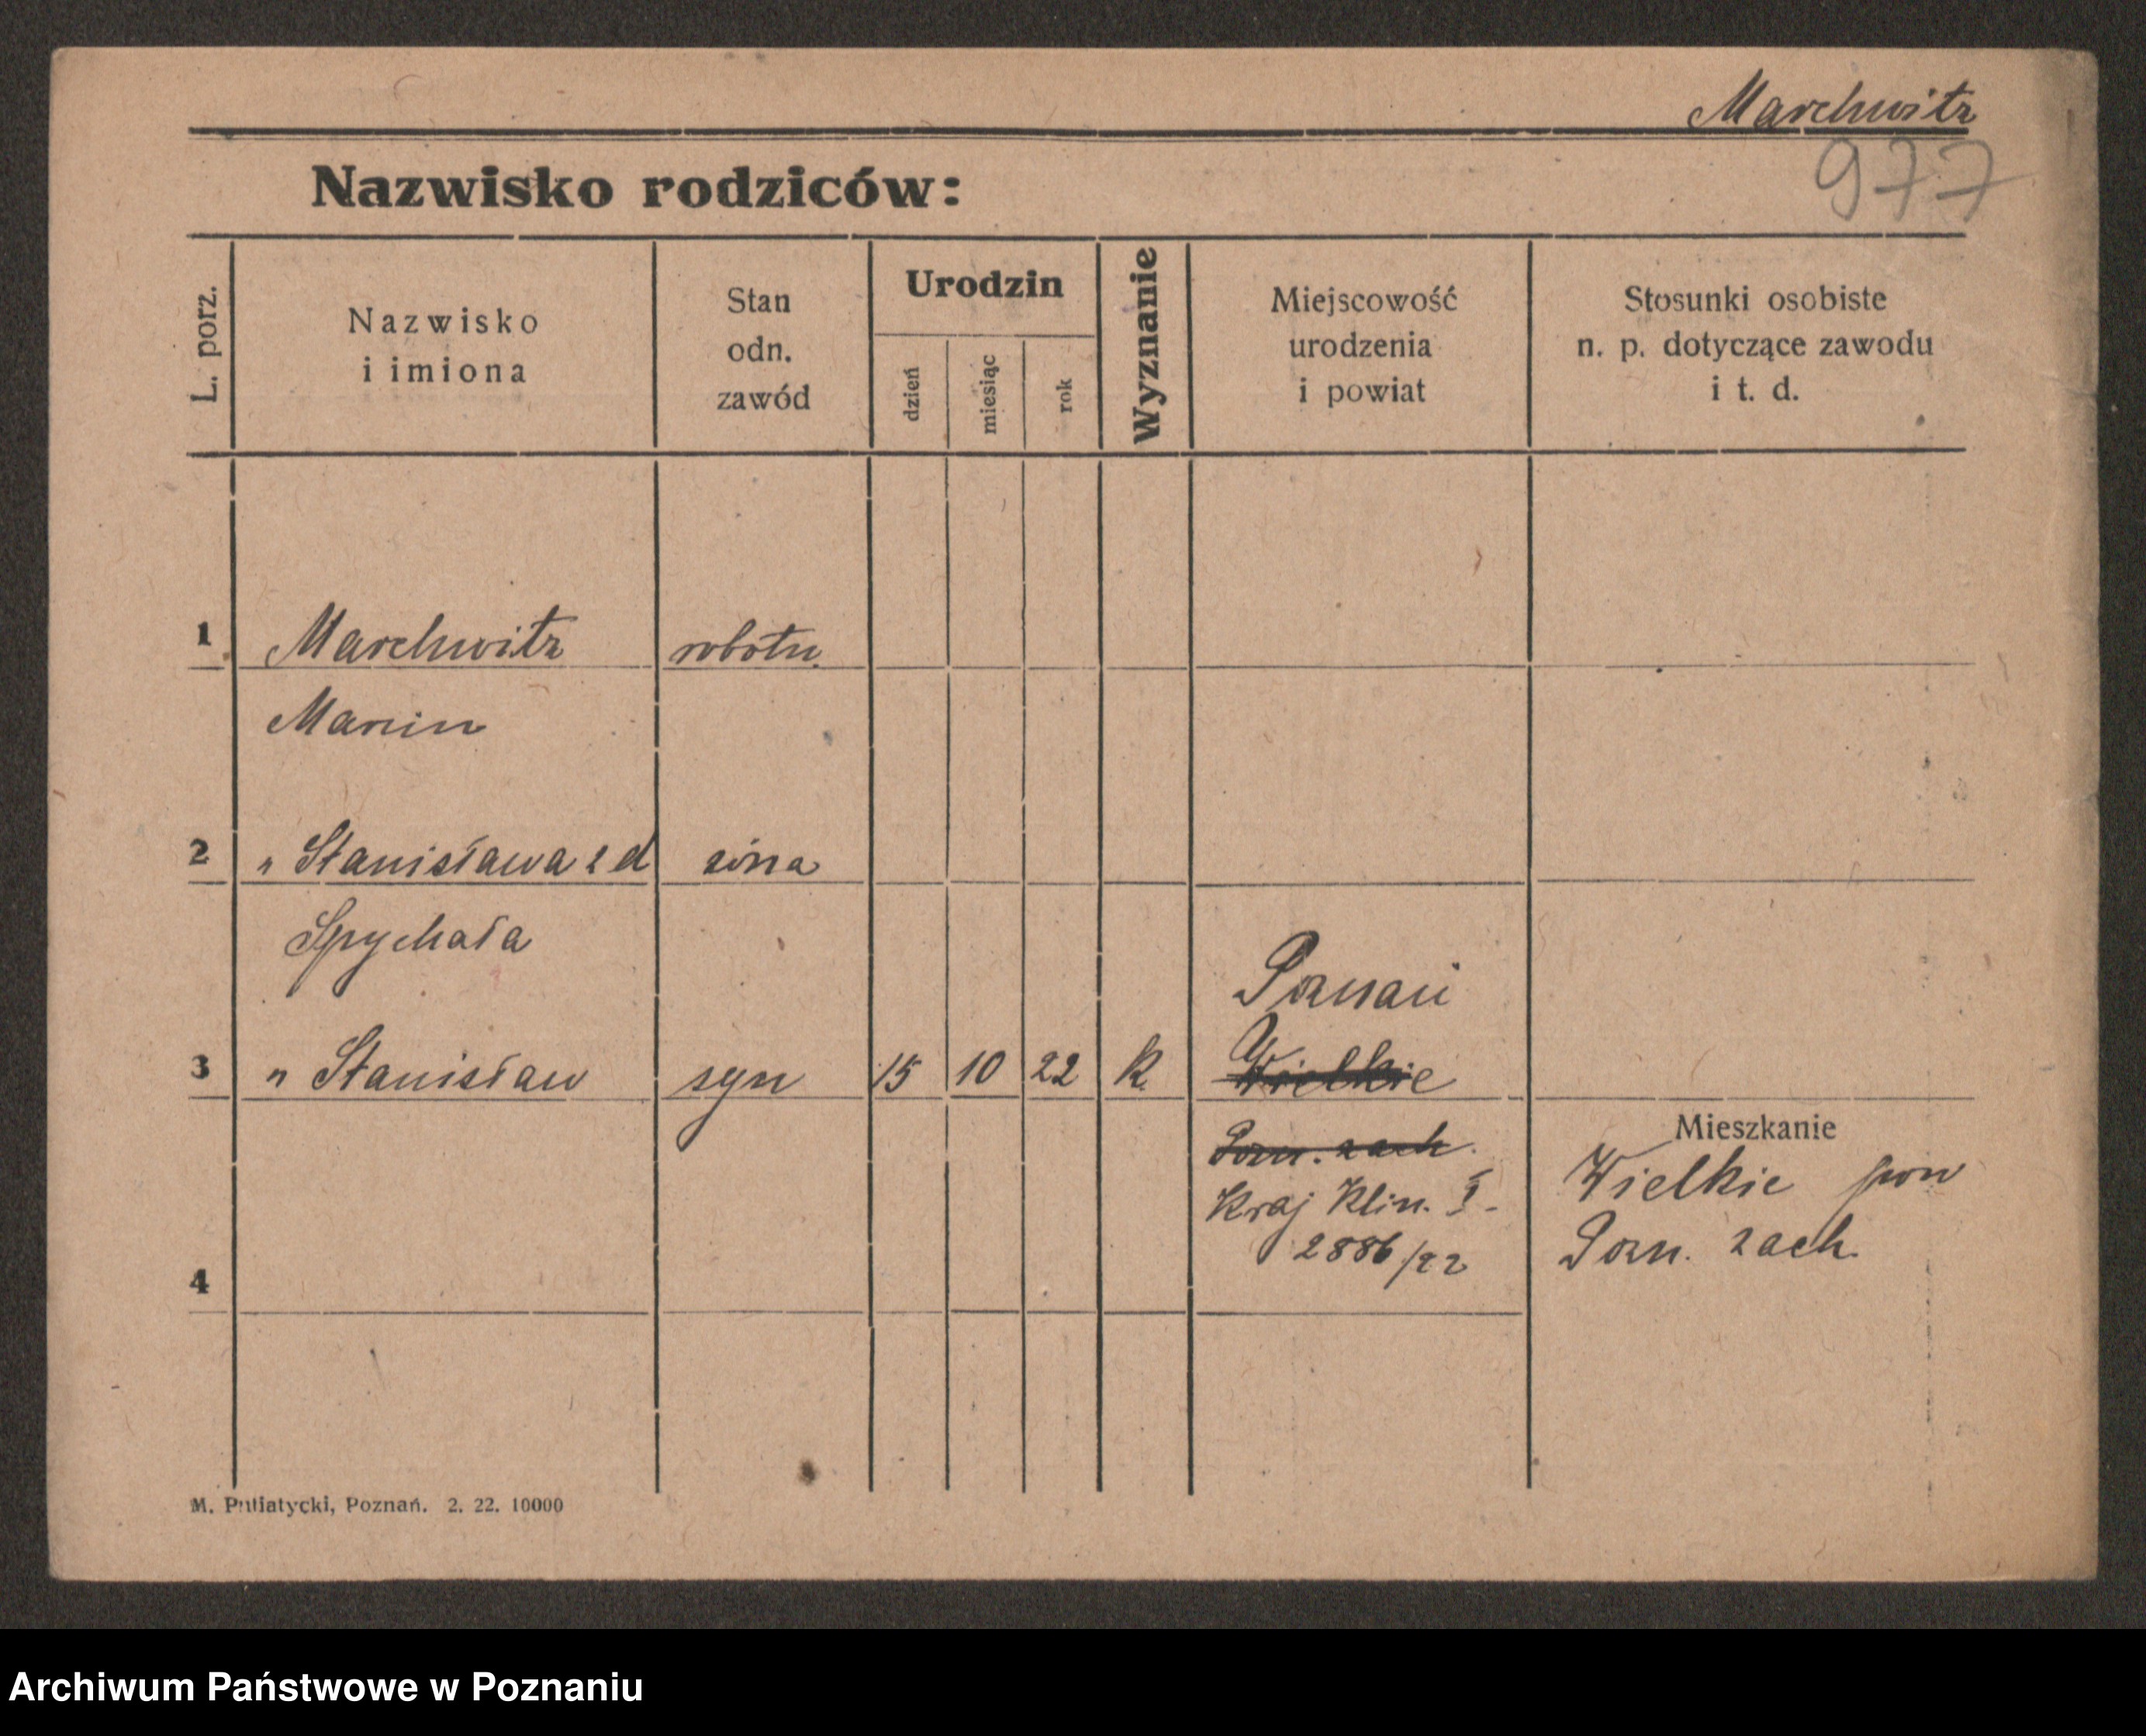 Marchwitz
977
Nazwisko rodziców:
L. porz.
Nazwisko
i imiona
Stan
odn.
zawód
Urodzin
dzień
miesiąc
rok
Wyznanie
Miejscowość
urodzenia
i powiat
Stosunki osobiste
n. p. dotyczące zawodu
i t. d.
1 Marchwitz robotn.
Marcin
2 " Stanisława z d żona
Spychała
Poznań
3 " Stanisław syn 15 10 22 k. Wielkie
Pozn. zach.
Kraj Klin. I -
2886/22
Mieszkanie
Wielkie pow
Pozn. zach.
4
M. Putiatycki, Poznań. 2. 22. 10000
Archiwum Państwowe w Poznaniu